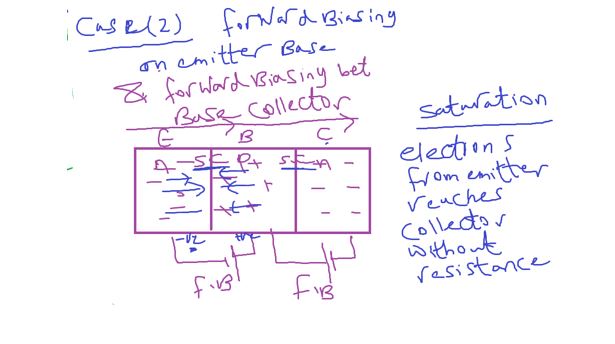 Case(2) forward Biasing
on emitter Base
& forward Biasing bet
Base Collector
E B C
saturation
elections
from emitter
reaches
collector
without
resistance
-ve +ve
f.B f.B